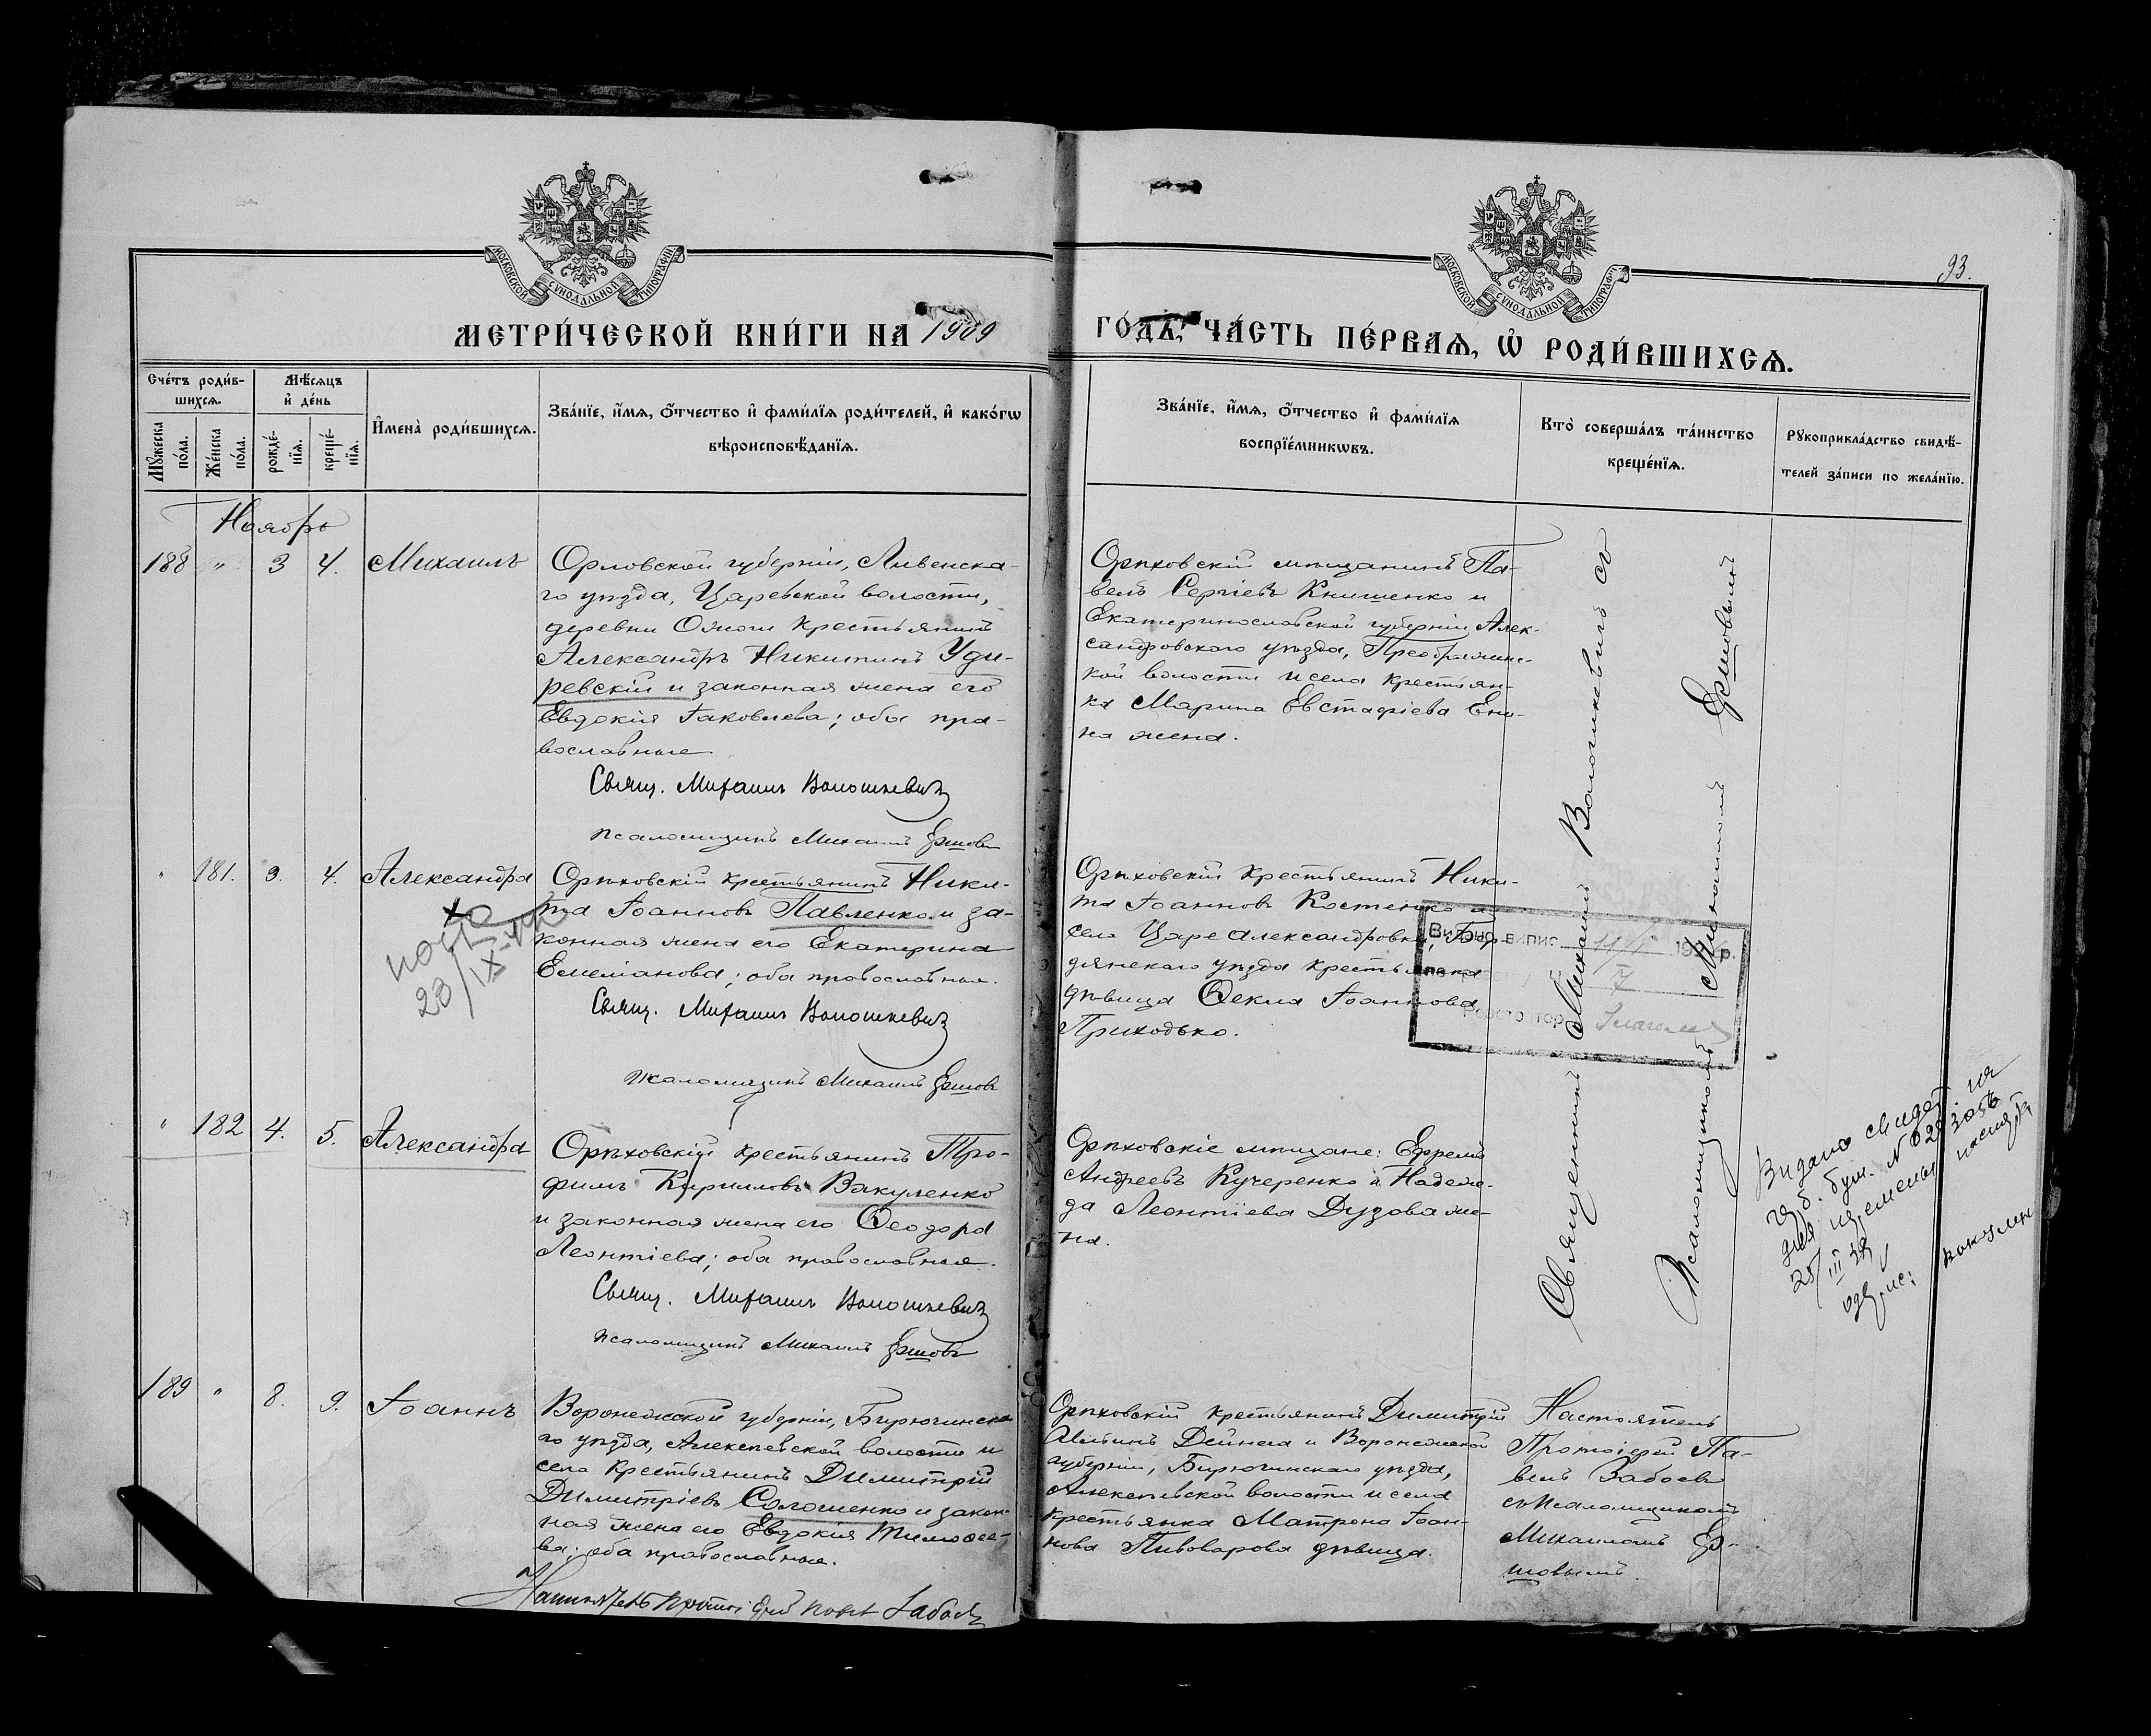 МОСКОВСКОЙ СѴНОДАЛЬНОЙ ТИПОГРАФІИ
МОСКОВСКОЙ СѴНОДАЛЬНОЙ ТИПОГРАФІИ
93.
МЕТРИ́ЧЕСКОЙ КНИ́ГИ НА 1909
ГО́ДЪ, ЧА́СТЬ ПЕ́РВАѦ, Ѡ҆ РОДИ́ВШИХСѦ.
Сче́тъ роди́в-
шихсѧ.
Мѣ́сѧцъ
и҆ де́нь
Мꙋ́жеска
по́ла.
Же́нска
по́ла.
рожде́-
нїѧ.
креще́-
нїѧ.
И҆мена̀ роди́вшихсѧ.
Зва́нїе, и҆́мѧ, ѻ҆́тчество и҆ фами́лїѧ роди́телей, и҆ како́гѡ
вѣроисповѣ́данїѧ.
Зва́нїе, и҆́мѧ, ѻ҆́тчество и҆ фами́лїѧ
воспрїе́мникѡвъ.
Кто̀ соверша́лъ та́инство
креще́нїѧ.
Рꙋкоприкла́дство свидѣ́-
телей за́писи по жела́нїю.
Ноябрь
188 " 3 4. Михаилъ
Орловской губерніи, Ливенска-
го уѣзда, Царевской волости,
деревни крестьянинъ
Александръ Никитинъ Уди-
ревскій и законная жена его
Евдокія Іаковлева; оба пра-
вославные.
Свящ. Михаилъ Волошкевичъ
Псаломщикъ Михаилъ Ершовъ
Орѣховскій мѣщанинъ Па-
велъ Сергіевъ Книшенко и
Екатеринославской губерніи Алек-
сандровскаго уѣзда, Преображенс-
кой волости и села крестьян-
ка Марина Евстафіева
на жена.
" 181. 3. 4. Александра
28/IX
Орѣховскій крестьянинъ Ники-
та Іоанновъ Павленко и за-
конная жена его Екатерина
Емеліанова; оба православные.
Свящ. Михаилъ Волошкевичъ
Псаломщикъ Михаилъ Ершовъ
Орѣховскій крестьянинъ Ники-
та Іоанновъ Костенко и
села Цареалександровки, Бер-
дянскаго уѣзда крестьянка
дѣвица Ѳекла Іоаннова
Приходько.
Видано випис 11/V 19 р.
" 182 4. 5. Александра
Орѣховскій крестьянинъ Тро-
фимъ Кирилловъ Вакуленко
и законная жена его Ѳеодора
Леонтіева; оба православные.
Свящ. Михаилъ Волошкевичъ
Псаломщикъ Михаилъ Ершовъ
Орѣховскіе мѣщане: Ефремъ
Андреевъ Кучеренко и Надеж-
да Леонтіева Дузова же-
на.
Священникъ Михаилъ Волошкевичъ съ
Псаломщикомъ Михаиломъ Ершовымъ
Видано свидет. на
25/III 39
189 " 8. 9. Іоаннъ
Воронежской губерніи, Бирюченска-
го уѣзда, Алексѣевской волости и
села крестьянинъ Димитрій
Димитріевъ Солошенко и закон-
ная жена его Евдокія Тимоѳее-
ва; оба православные.
Настоятель Протоіерей Павелъ Забоевъ
Орѣховскій крестьянинъ Димитрій
Ильинъ Дейнега и Воронежской
губерніи, Бирюченскаго уѣзда,
Алексѣевской волости и села
крестьянка Матрона Іоан-
нова Пивоварова дѣвица.
Настоятель
Протоіерей Па-
велъ Забоевъ
съ Псаломщикомъ
Михаиломъ Ер-
шовымъ.